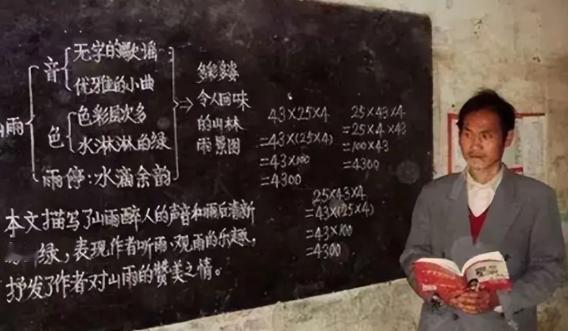 雨
音
无字的歌谣
优雅的小曲
色
色彩层次多
水淋淋的绿
雨停:水滴余韵
令人回味
的山林
雨景图
本文描写了山雨醉人的声音和雨后清新
绿,表现作者听雨、观雨的乐趣,
抒发了作者对山雨的赞美之情。
43×25×4
=43×(25×4)
=43×100
=4300
25×43×4
=25×4×43
=100×43
=4300
25×43×4
=43×(25×4)
=43×100
=4300